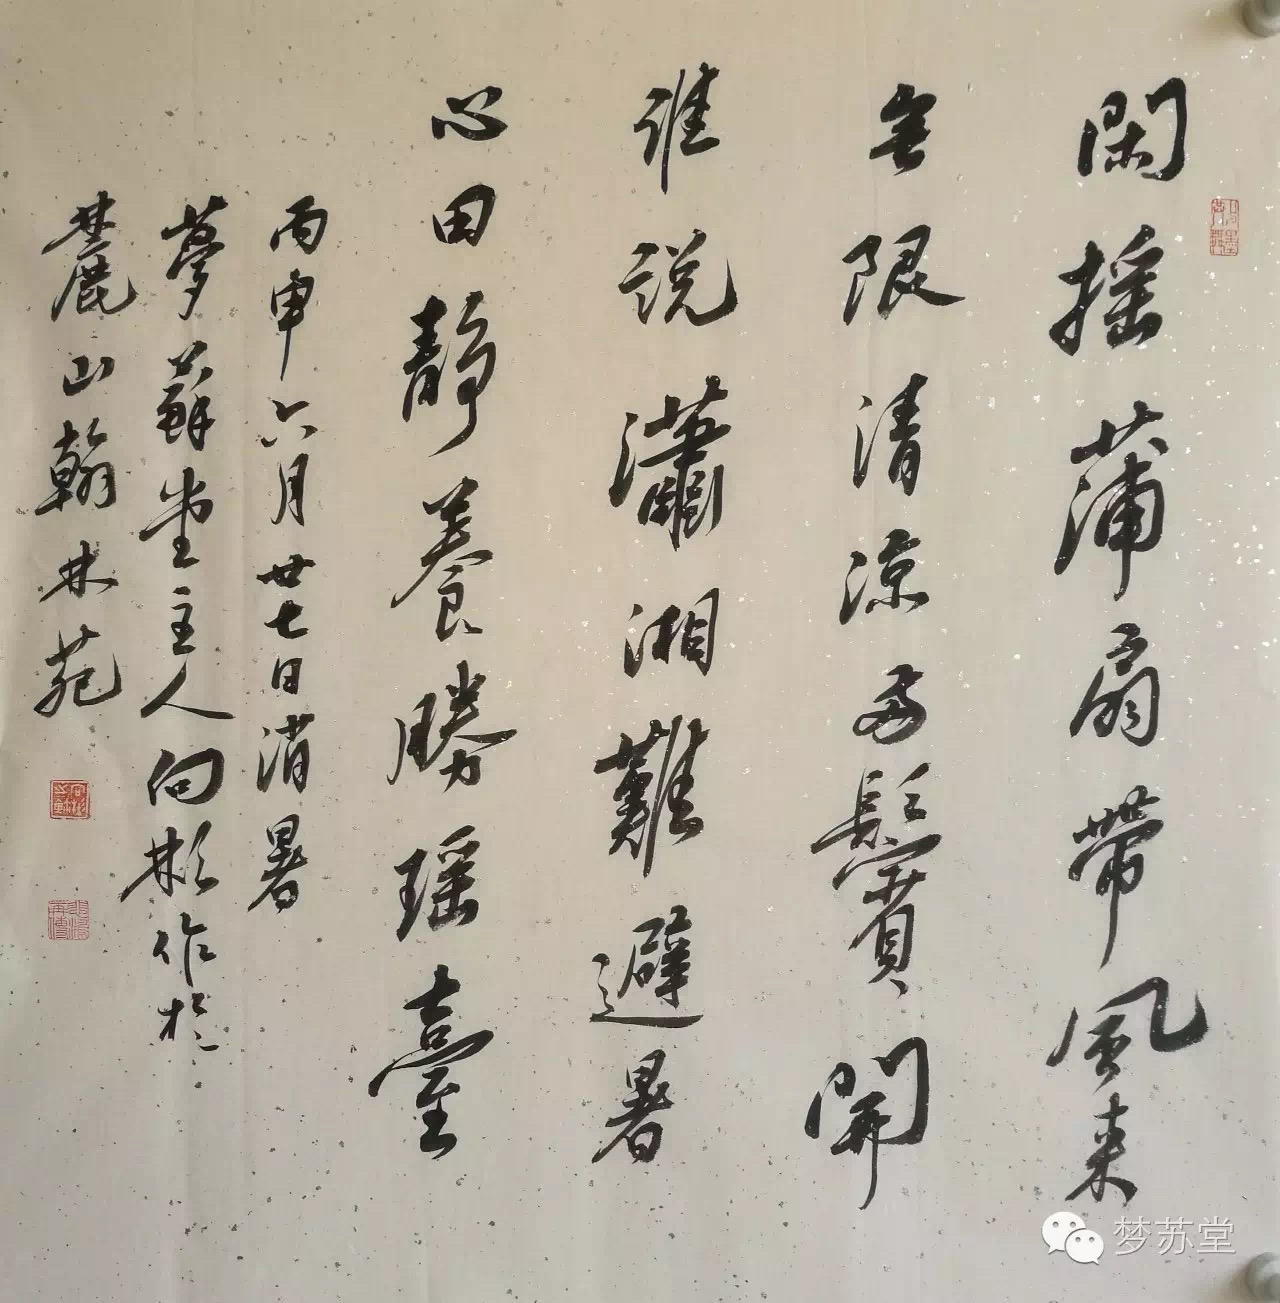 閑摇蒲扇帶風来
無限清凉兩鬢開
誰説瀟湘難避暑
心田靜養勝瑶臺
丙申六月廿七日消暑
夢蘇堂主人向彬作於
麓山翰林苑
梦苏堂